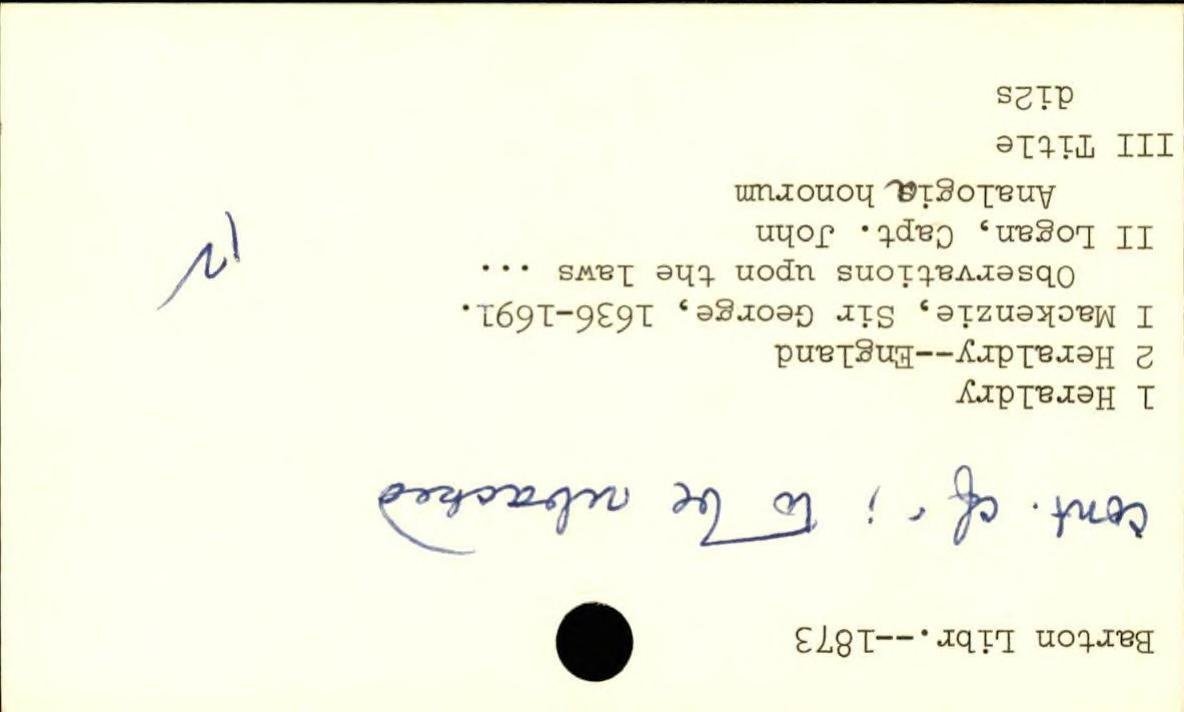 Barton Libr.--1873
cont. cf.; to be rebacked
1 Heraldry
2 Heraldry--England
I Mackenzie, Sir George, 1636-1691.
Observations upon the laws ...
II Logan, Capt. John
Analogia honorum
III Title
di2s